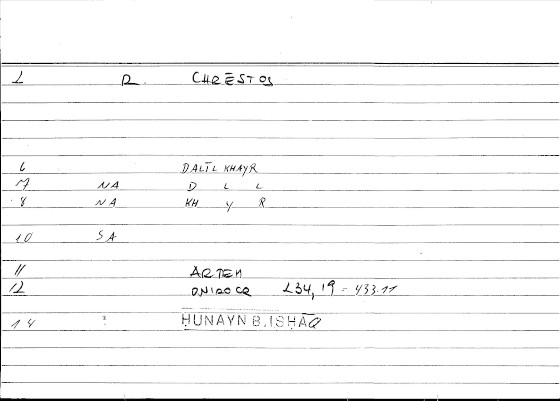 1 R. CHRĒSTOS
6 DALĪL KHAYR
7 NA D L L
8 NA KH Y R
10 SA
11 ARTEM
12 ONIROCR 234, 19 = 433.11
14 : ḤUNAYN B. ISḤĀQ